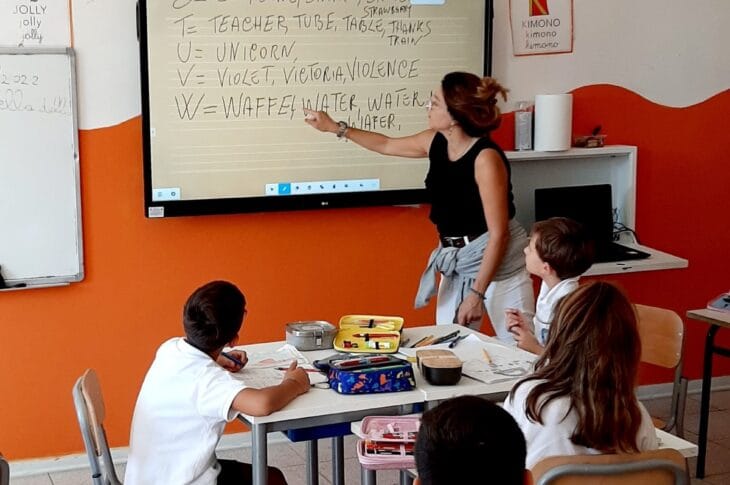 JOLLY
jolly
jolly
STRAWBERRY
T = TEACHER, TUBE, TABLE, THANKS
TRAIN
U = UNICORN,
V = VIOLET, VICTORIA, VIOLENCE
W = WAFFEL, WATER, WATER
WAFER,
KIMONO
kimono
kimono
2022